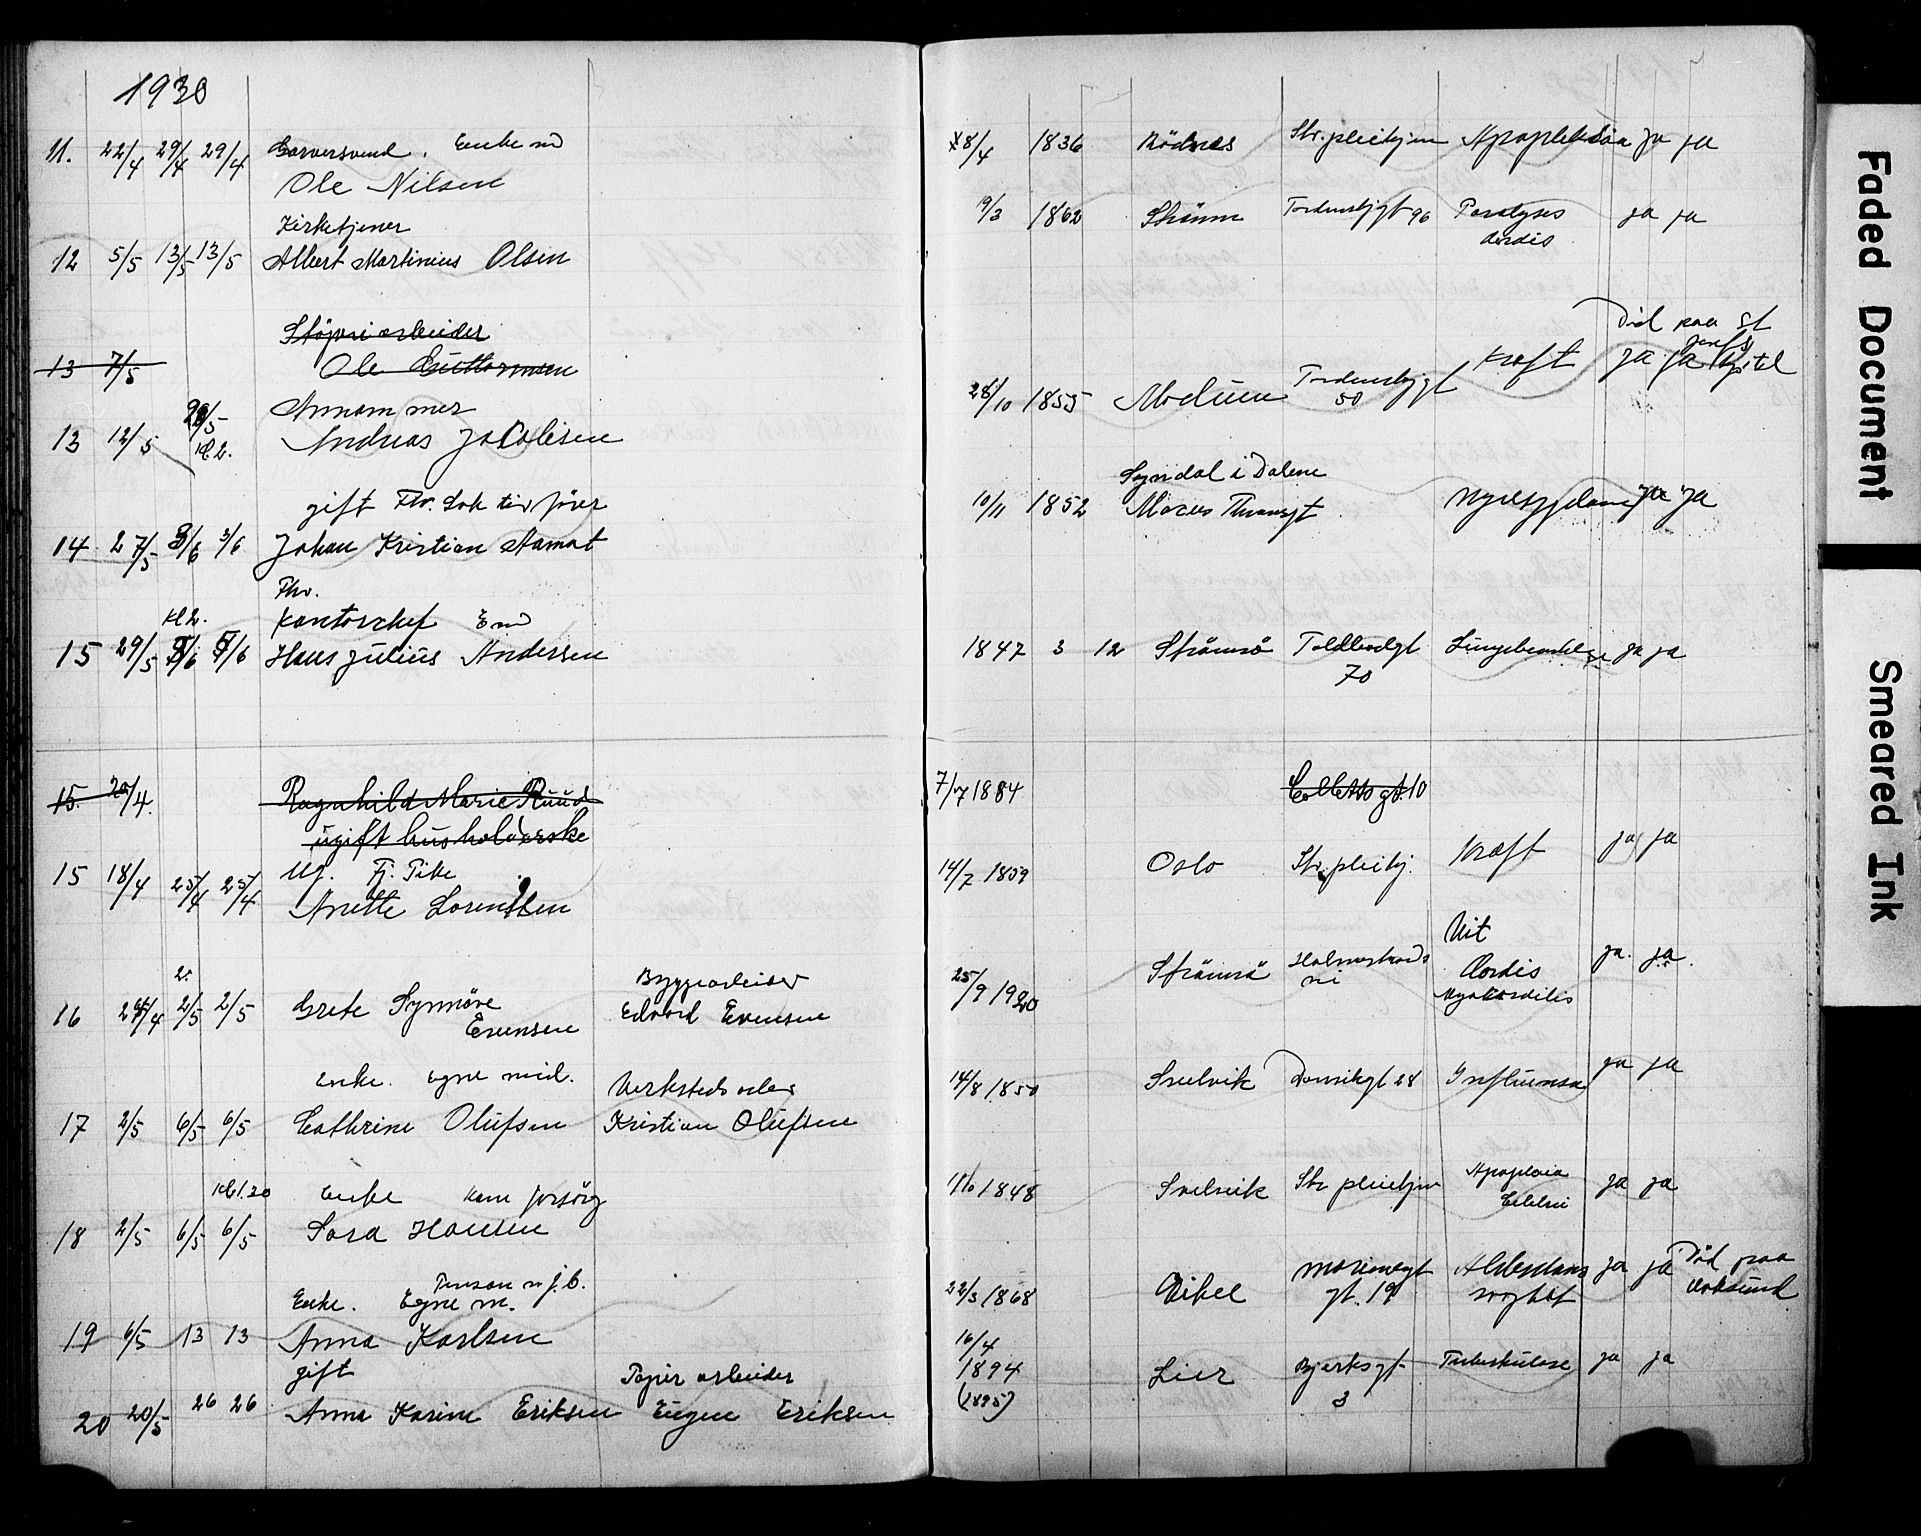 1930
11. 22/4 29/4 29/4 Garversvend. Enkemd
Ole Nilsen
28/4 1836 Rödnes Str. pleiehjem Apopleksia ja ja
Kirketjener
12 5/5 13/5 13/5 Albert Martinius Olsen
9/3 1862 Strömm Tordenskjgt 96 Paralyses
Cordis ja ja
Støperiarbeider
13 7/5 Ole Guttormsen
Död paa st
Josefs
Hospital
13 12/5 28/5 Kl 2. Andreas Jacobsen
28/10 1855 Modum Tordenskjgt
50 Kræft ja ja
gift Fhv. Lokomotivfører
14 27/5 3/6 3/6 Johan Kristian Aamot
Syndal i Dalene
10/11 1852 Marcus Thranesgt Nyresygdom ja ja
Fhv.
Kl 2. Kontorchef Emd
15 29/5 5/6 5/6 Hans Julius Andersen
1847 3 12 Strömsö Toldbodgt
70 Lungebetændelse ja ja
15. 20/4. Ragnhild Marie Ruud
ugift husholderske
7/7 1884 Collettsgt. 10
15 18/4 25/4 25/4 Ug. Tj. Pike
Anette Lorentsen
14/7 1859 Oslo Str. pleiehj. Kræft ja ja
2.
16 24/4 2/5 2/5 Grete Synnöve
Evensen
Byggearbeider
Edvard Evensen
25/9 1920 Strömsö Holmestrands
vei Vit
Cordis
Myokarditis ja. ja.
Enke. egne mid. Verkstedsarb
17 2/5 6/5 6/5 Cathrine Olufsen Kristian Olufsen
14/8 1850 Svelvik Danvikgt 28 Influensa ja ja
Kl 1.30 Enke kom forsörg
18 2/5 6/5 6/5 Sara Hansen
11/10 1848 Svelvik Str pleiehjem Apoplexia
Celebri ja ja
Pension n. j. b.
Enke. Egne m.
19 6/5 13 13 Anna Karlsen
22/3 1868 Eikel Mariensgt
gt. 19 Alderdoms
svaghet ja ja Död paa
Hoksund
gift Papirarbeider
20 20/5 26 26 Anna Karine Eriksen Eugen Eriksen
16/4
1894
(1895) Lier Bjerksgt
3 Tuberkulose ja ja
Faded Document
Smeared Ink